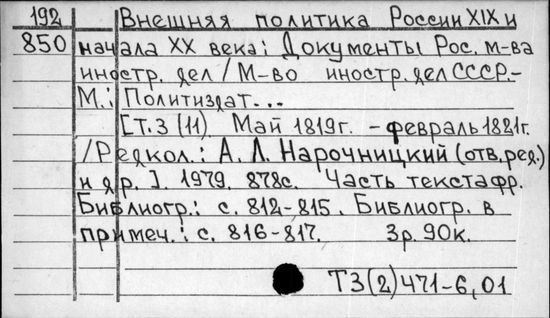 192 Внешняя политика России XIX и
850 начала XX века: Документы Рос. м-ва
иностр. дел / М-во иностр. дел СССР.-
М.: Политиздат...
[Т. 3 (11). Май 1819г. - февраль 1821г.
/Редкол.: А. Л. Нарочницкий (отв. ред.)
и др.]. 1979. 878с. Часть текста фр.
Библиогр.: с. 812-815. Библиогр. в
примеч.: с. 816-817. 3р. 90к.
Т3(2)471-6,01